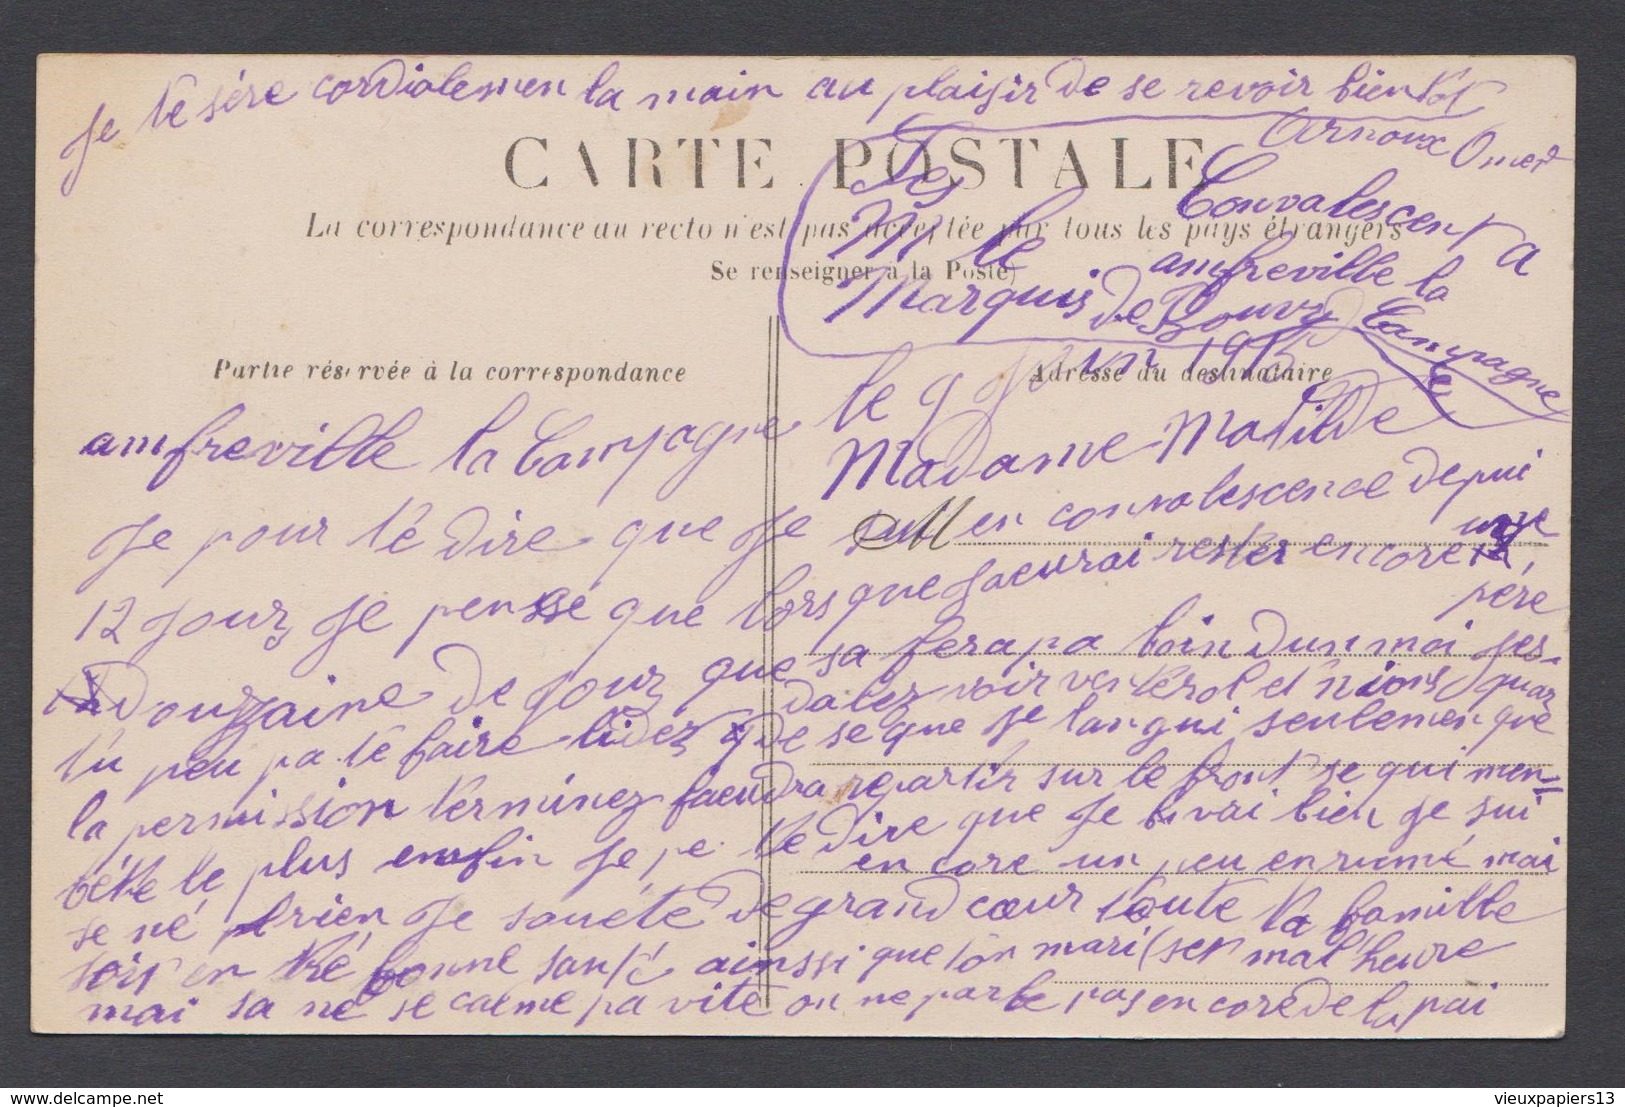 Je te sère cordialemen la main au plaisir de se revoir bientot
Arnoux Omer
CARTE POSTALE
La correspondance au recto n'est pas acceptée par tous les pays étrangers
Se renseigner à la Poste)
M le
Marquis
de Bouvry
Convalescent a
amfreville la
Campagne
Partie réservée à la correspondance
Adresse du destinataire
amfreville la Campagne le 9 1915
Madame Matilde
Je pour té dire que je sui en convalescence depui
12 jour je pensé que lors que faeurai rester encore une
douzaine de jour que sa fera pa loin dun moi jes-père
dalez voir vertérol et nions quar
tu peu pa té faire lidéz de se que je langui seulemen que
la permission terminez faeudra repartir sur le front se qui men-
béte le plus enfin je pe te dire que je vai bien je sui
en core un peu enrumé mai
se né rien je souéte de grand cœur toute la famille
soit en tré bonne santé ainssi que ton mari (set mal'heure
mai sa né se calme pa vite on ne parle pas en core de la pai
vieuxpapiers13